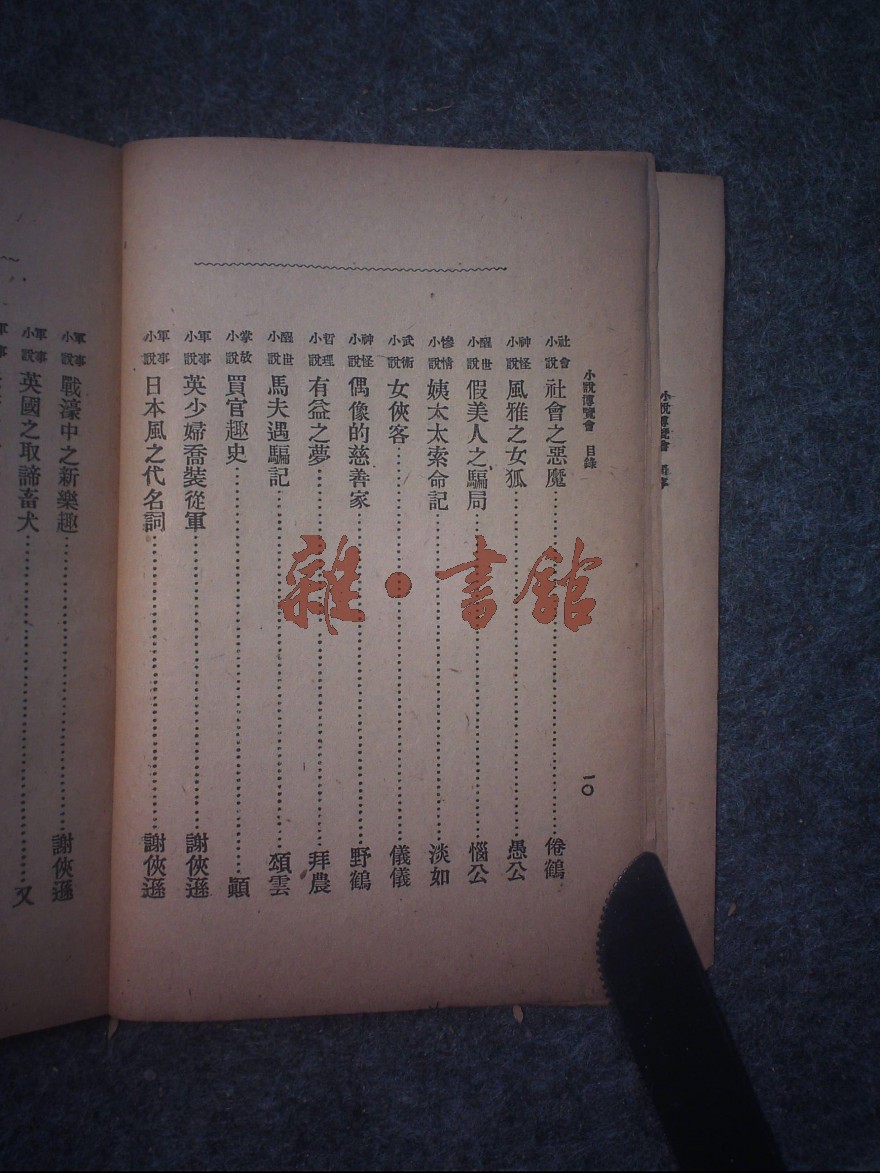 小說博覽會 目錄 一〇
社會小說 社會之惡魔 倦鶴
神怪小說 風雅之女狐 愚公
醒世小說 假美人之騙局 惱公
慘情小說 姨太太索命記 淡如
武術小說 女俠客 儀儀
神怪小說 偶像的慈善家 野鶴
哲理小說 有益之夢 拜農
醒世小說 馬夫遇騙記 頌雲
掌故小說 買官趣史 顓
軍事小說 英少婦喬裝從軍 謝俠遜
軍事小說 日本風之代名詞 謝俠遜
軍事小說 戰濠中之新樂趣 謝俠遜
軍事小說 英國之取諦畜犬 又
雜·書館
小說博覽會